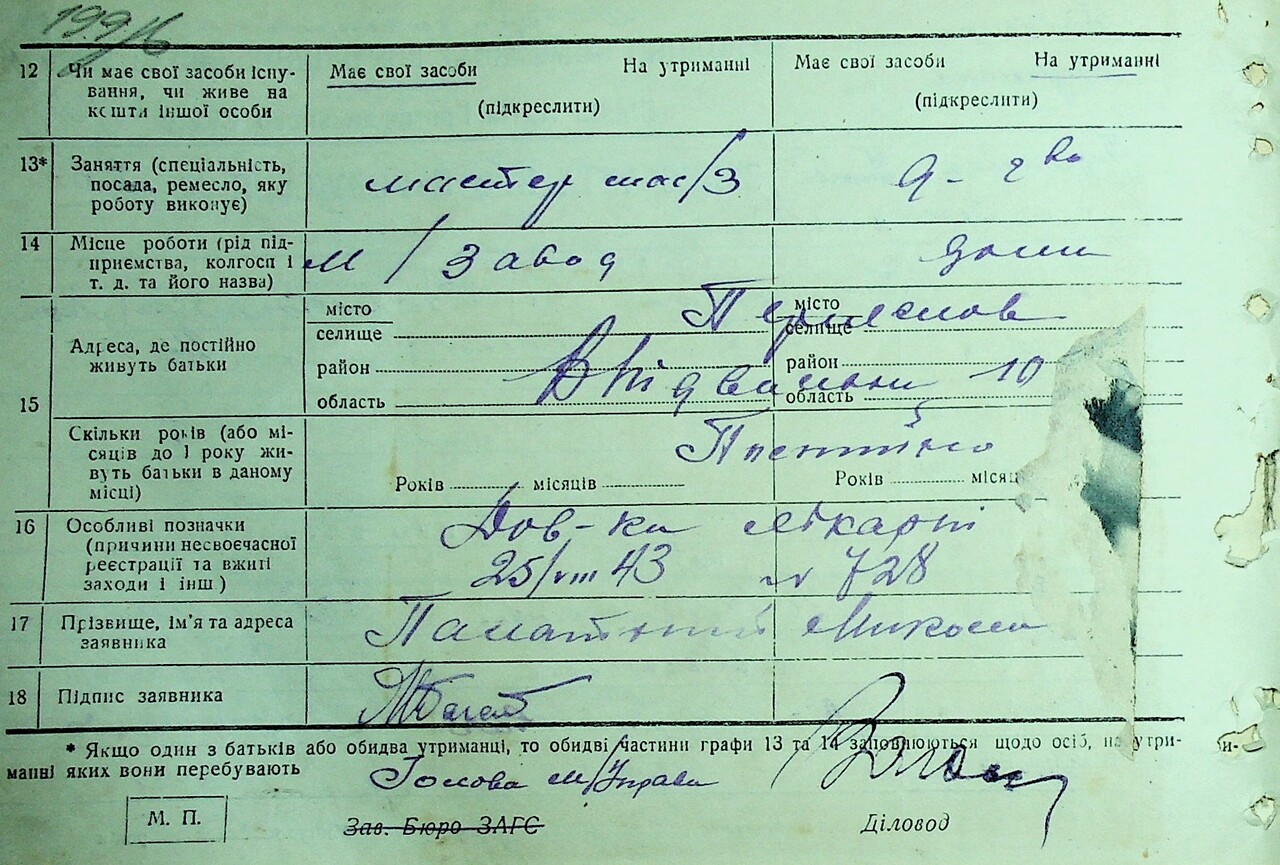 199/6
12 Чи має свої засоби існу- Має свої засоби На утриманні Має свої засоби На утриманні
вання, чи живе на
кошти іншої особи (підкреслити) (підкреслити)
13* Заняття (спеціальність,
посада, ремесло, яку мастер мас/З д-гво
роботу виконує)
14 Місце роботи (рід під-
приємства, колгосп і М/Завод дома
т. д. та його назва)
місто місто
селище селище
15 Адреса, де постійно район район 10
живуть батьки область область
Скільки років (або мі-
сяців до 1 року жи- Постійно
вуть батьки в даному
місці) Років місяців Років місяц
16 Особливі позначки Дов-ка лікарні
(причини несвоєчасної
реєстрації та вжиті 25/VIII 43 № 728
заходи і інш )
17 Прізвище, ім'я та адреса Микола
заявника
18 Підпис заявника
* Якщо один з батьків або обидва утриманці, то обидві частини графи 13 та 14 заповнюються щодо осіб, на утри-
манні яких вони перебувають
Голова М/Управи
М. П. Зав. Бюро ЗАГС Діловод